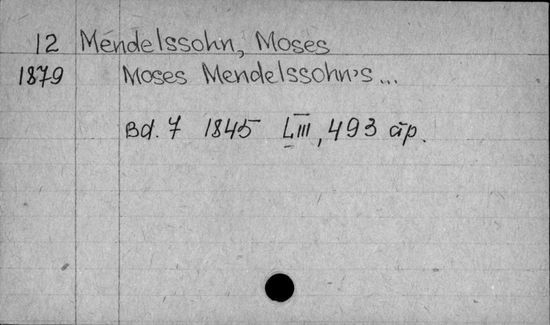 12 Mendelssohn, Moses
1879 Moses Mendelssohn's...
Bd. 7 1845 LIII, 493 āp.